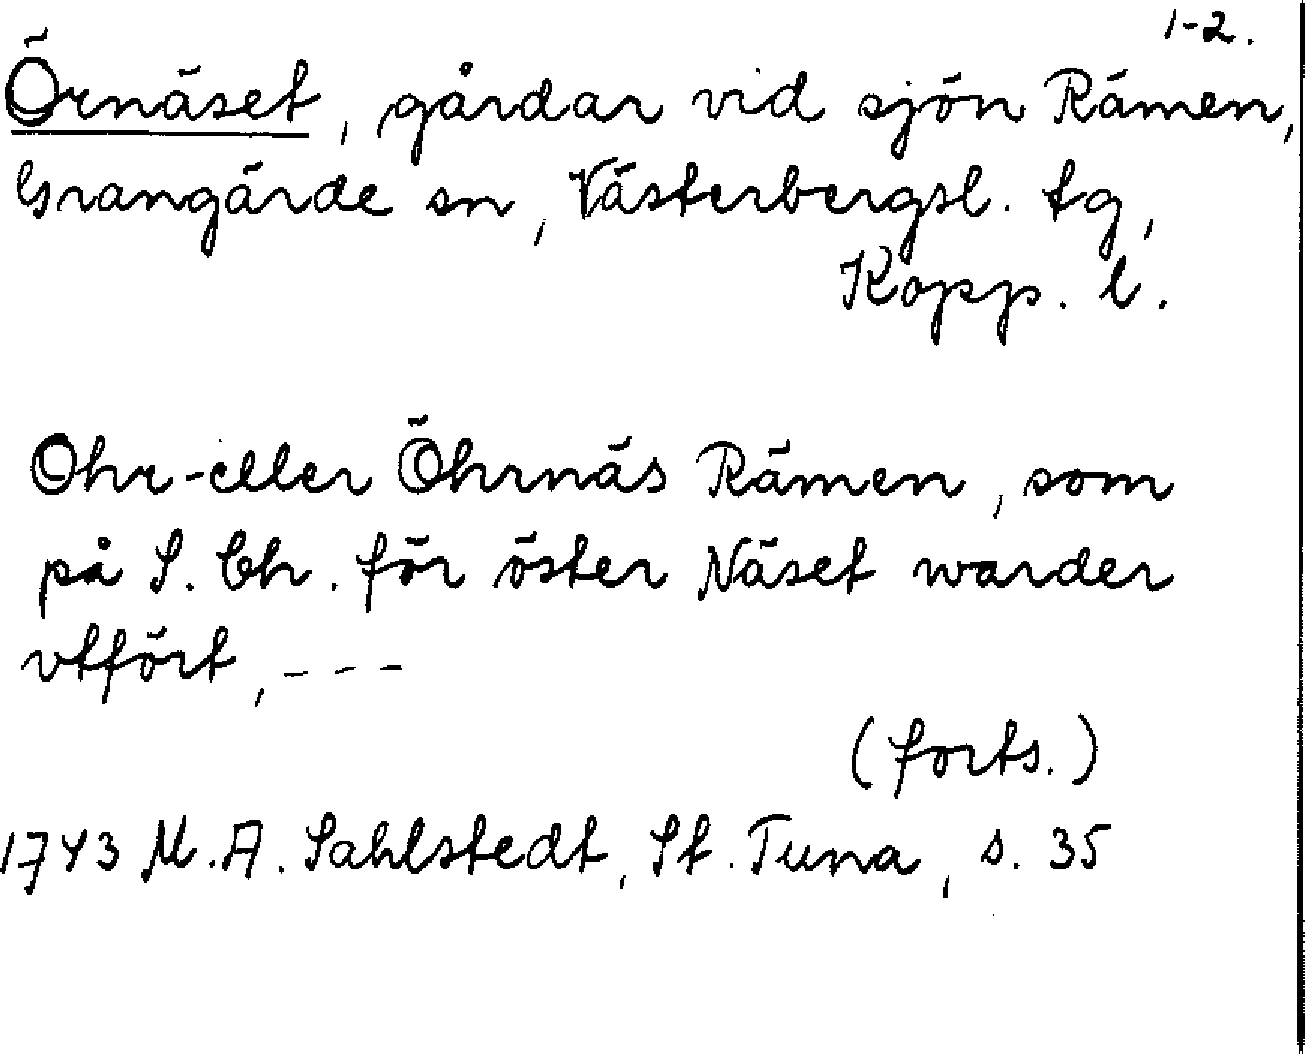 1-2.
Örnäset, gårdar vid sjön Rämen,
Grangärde sn, Västerbergsl. tg,
Kopp. l.
Ohr- eller Öhrnäs Rämen, som
på S. Ch. för öster Näset warder
vtfört, - - -
(forts.)
1743 M. A. Sahlstedt, St. Tuna, s. 35